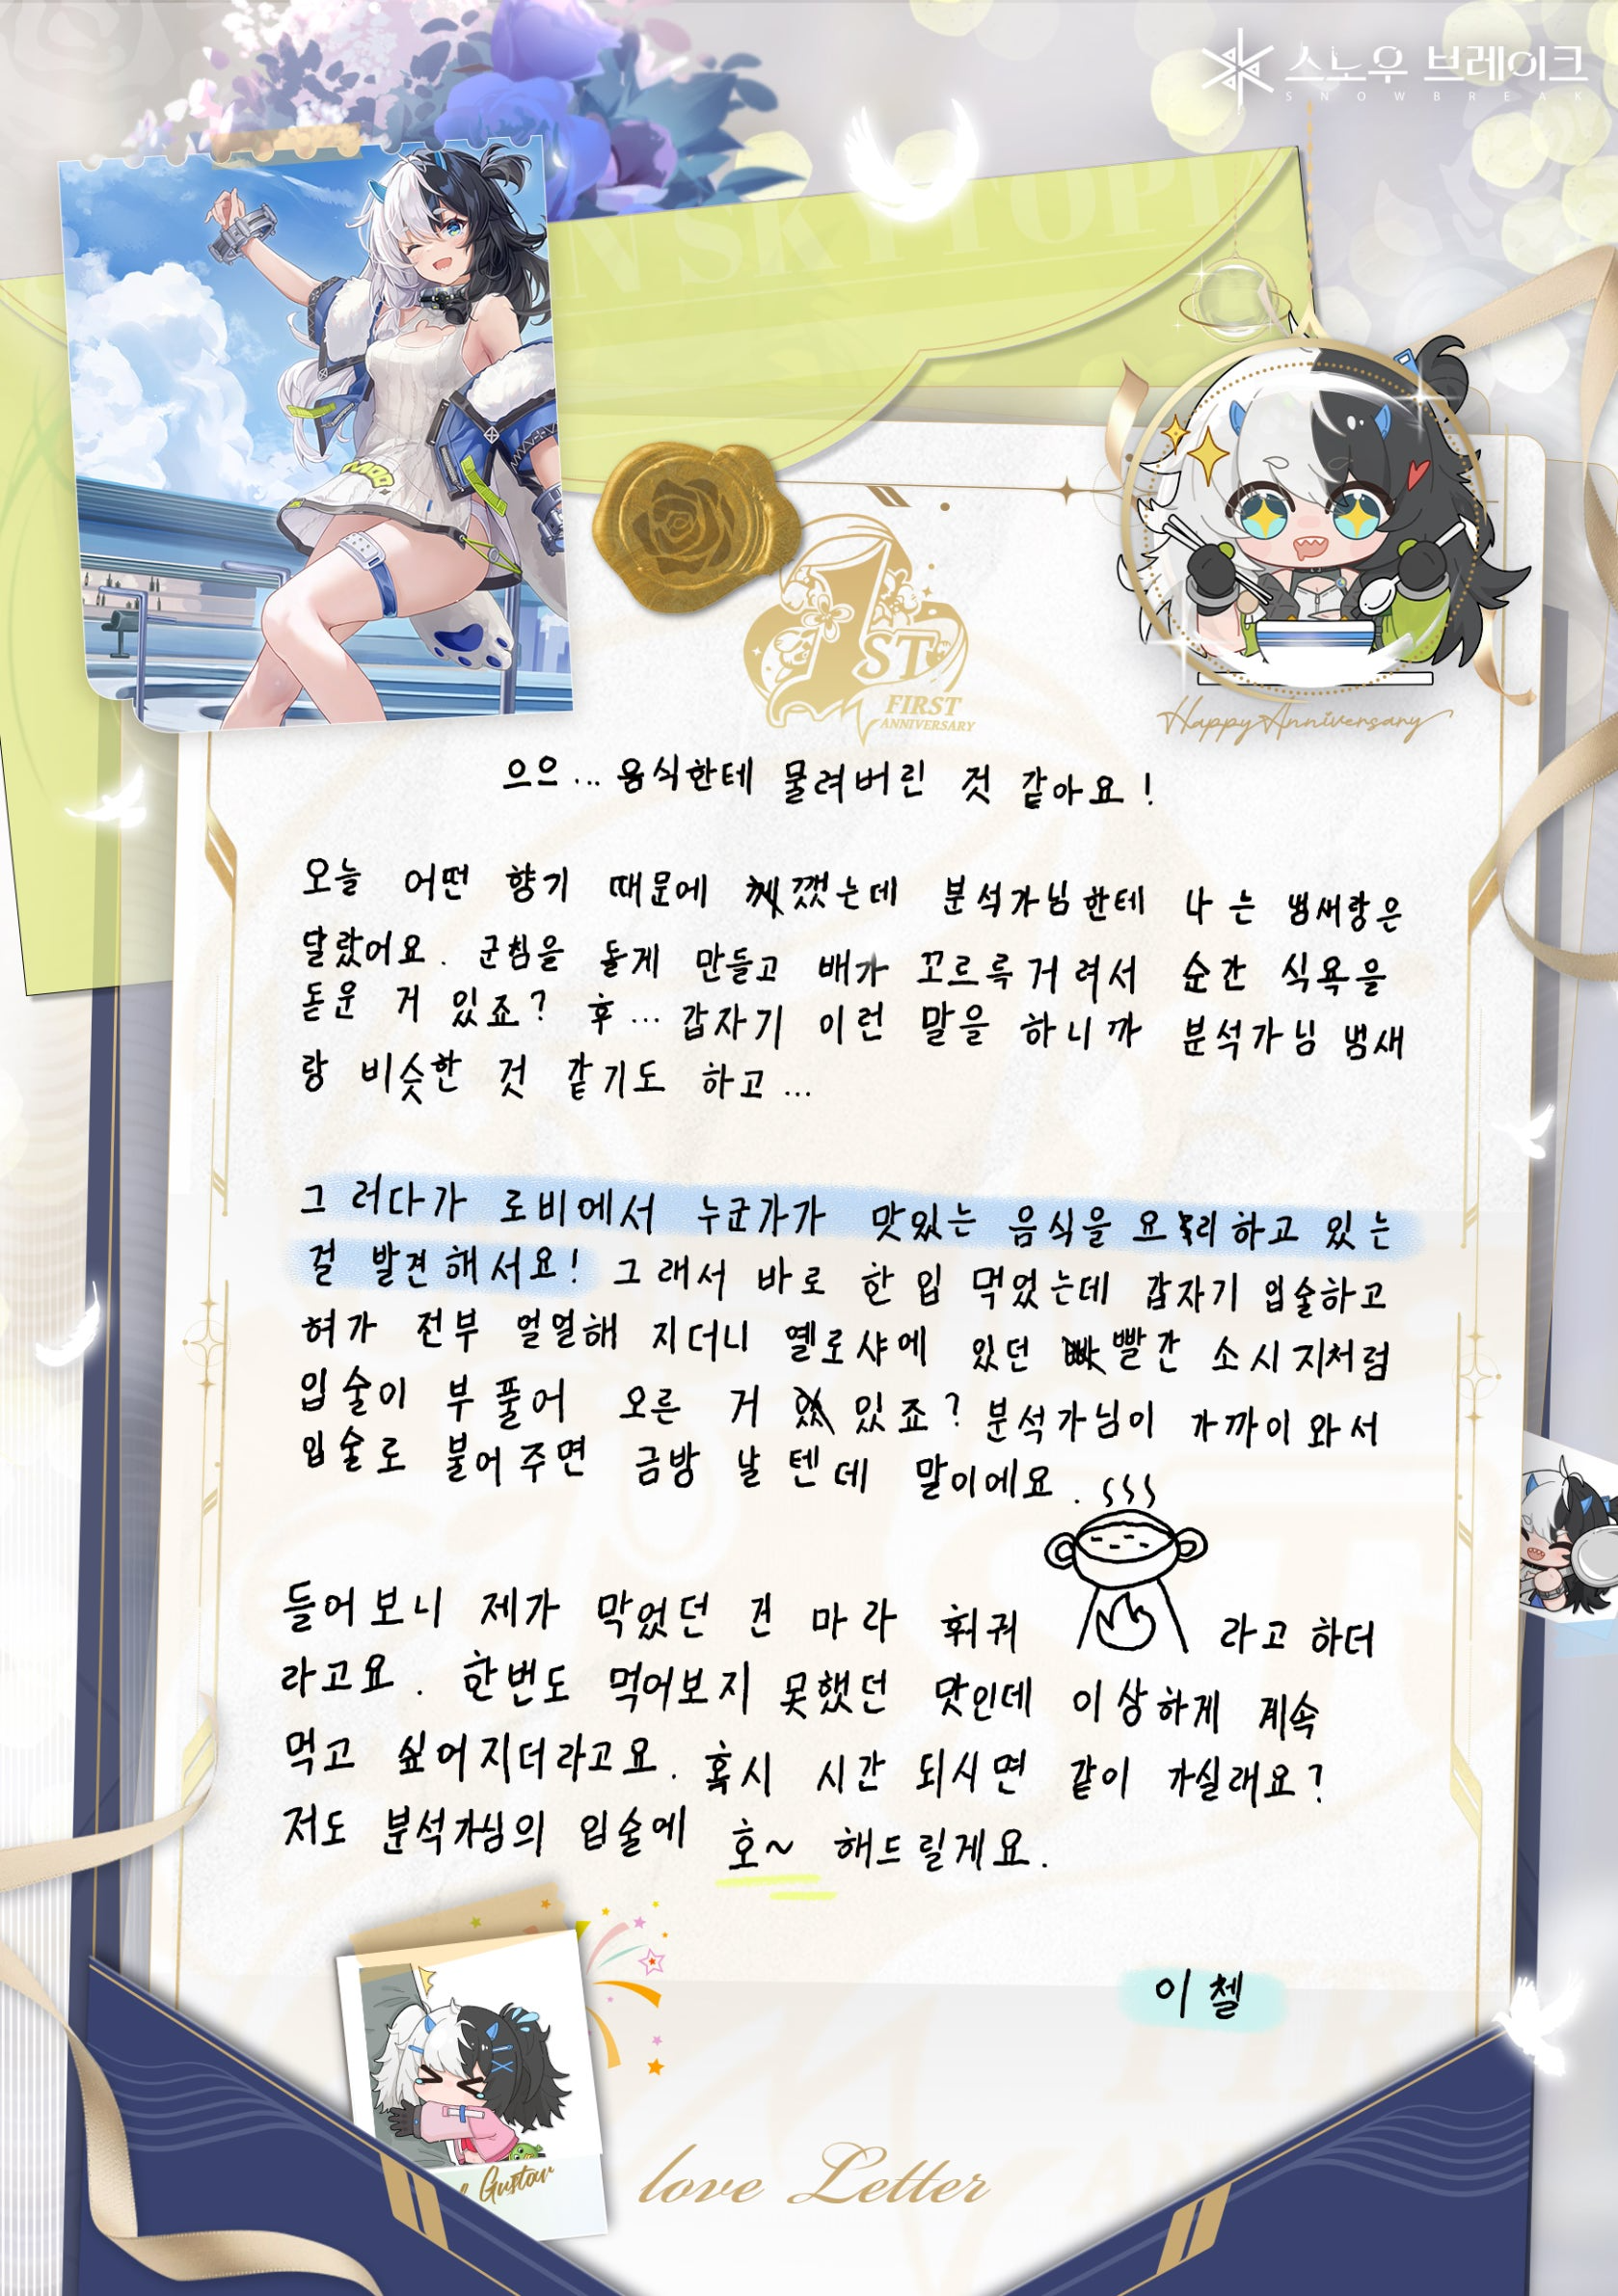 스노우 브레이크
SNOWBREAK
1ST
FIRST
ANNIVERSARY
Happy Anniversary
으으... 음식한테 물려버린 것 같아요!
오늘 어떤 향기 때문에 깼는데 분석가님한테 나는 냄새랑은
달랐어요. 군침을 돌게 만들고 배가 꼬르륵거려서 순간 식욕을
돋운 거 있죠? 후... 갑자기 이런 말을 하니까 분석가님 냄새
랑 비슷한 것 같기도 하고...
그러다가 로비에서 누군가가 맛있는 음식을 요리하고 있는
걸 발견해서요! 그래서 바로 한 입 먹었는데 갑자기 입술하고
혀가 전부 얼얼해 지더니 옐로샤에 있던 빨간 소시지처럼
입술이 부풀어 오른 거 있죠? 분석가님이 가까이 와서
입술로 불어주면 금방 날 텐데 말이에요.
들어보니 제가 막었던 건 마라 훠궈 라고 하더
라고요. 한번도 먹어보지 못했던 맛인데 이상하게 계속
먹고 싶어지더라고요. 혹시 시간 되시면 같이 가실래요?
저도 분석가님의 입술에 호~ 해드릴게요.
이첼
Gustav
love Letter